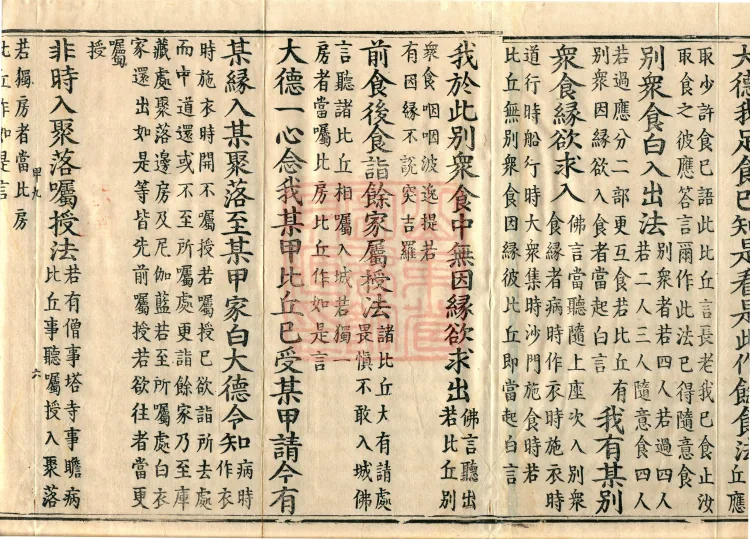 大德我足食已知是看是此作餘食法丘應
取少許食已語此比丘言長老我已食止汝
取食之彼應答言爾作此法已得隨意食
別衆食白入出法別衆者若四人若過四人
若二人三人隨意食四人
若過應分二部更互食若比丘有
別衆因緣欲入食者當起白言我有某別
衆食緣欲求入佛言當聽隨上座次入別衆
食緣者病時作衣時施衣時
道行時船行時大衆集時沙門施食時若
比丘無別衆食因緣彼比丘即當起白言
我於此別衆食中無因緣欲求出佛言聽出
若比丘別
衆食咽咽波逸提若
有因緣不說突吉羅
前食後食詣餘家囑授法諸比丘大有請處
畏慎不敢入城佛
言聽諸比丘相囑入城若獨一
房者當囑比房比丘作如是言
大德一心念我某甲比丘已受某甲請今有
某緣入某聚落至某甲家白大德令知病時
作衣
時施衣時開不囑授若囑授已欲詣所去處
而中道還或不至所囑處更詣餘家乃至庫
藏處聚落邊房及尼伽藍若至所囑處白衣
家還出如是等皆先前囑授若欲往者當更
囑
授
甲九 六
非時入聚落囑授法若有僧事塔寺事瞻病
比丘事聽囑授入聚落
若獨房者當比房
比丘作如是言